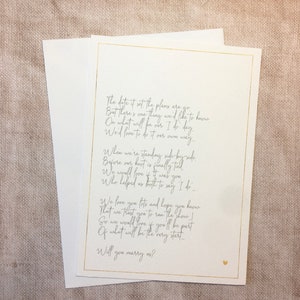 The date is set the plans are go
But there's one thing we'd like to know
On what will be our 'I do' day
We'd love to do it our own way
When we're standing side by side
Before our knot is finally tied
We would love if it was you
Who helped us both to say 'I do'...
We love you lots and hope you know
That we trust you to run the show!
So we would love if you'll be part
Of what will be the very start...
Will you marry us?